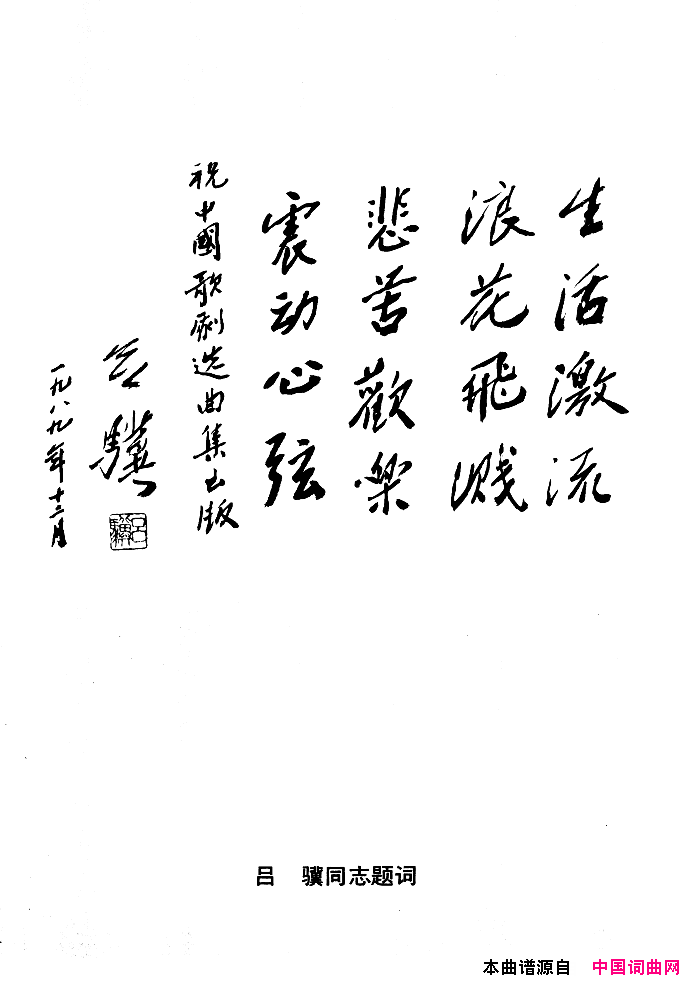 生活激流
浪花飛溅
悲苦歡樂
震动心弦
祝中國歌剧选曲集出版
吕驥
一九八九年十二月
吕驥
吕 骥同志题词
本曲谱源自 中国词曲网